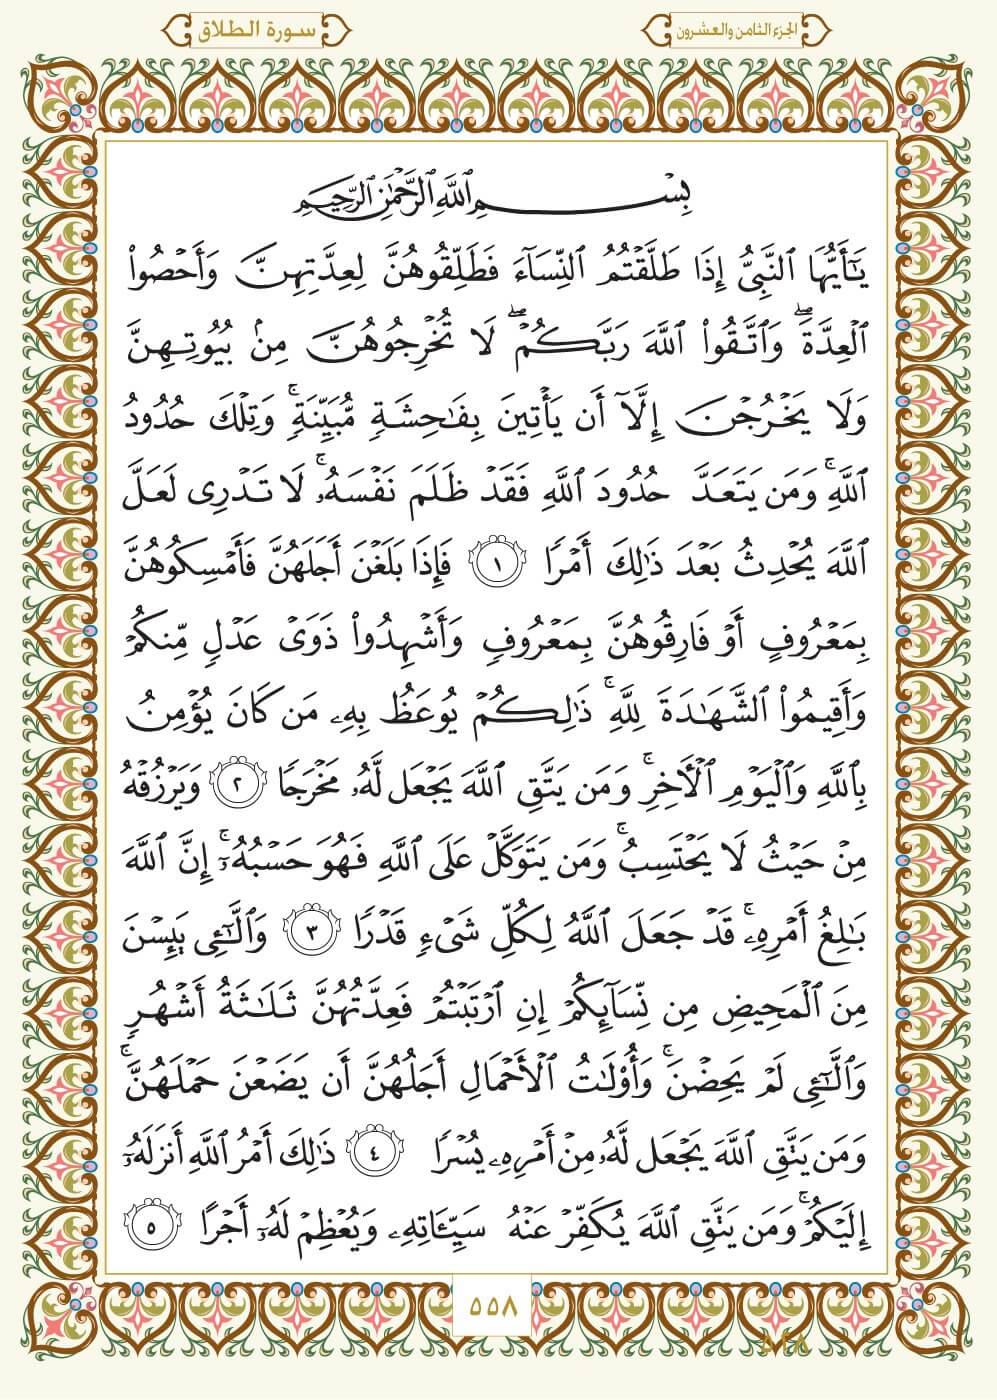 الجزء الثامن والعشرون
سورة الطلاق
بِسْمِ ٱللَّهِ ٱلرَّحْمَٰنِ ٱلرَّحِيمِ
يَٰٓأَيُّهَا ٱلنَّبِىُّ إِذَا طَلَّقْتُمُ ٱلنِّسَآءَ فَطَلِّقُوهُنَّ لِعِدَّتِهِنَّ وَأَحْصُوا۟
ٱلْعِدَّةَ ۖ وَٱتَّقُوا۟ ٱللَّهَ رَبَّكُمْ ۖ لَا تُخْرِجُوهُنَّ مِنۢ بُيُوتِهِنَّ
وَلَا يَخْرُجْنَ إِلَّآ أَن يَأْتِينَ بِفَٰحِشَةٍ مُّبَيِّنَةٍ ۚ وَتِلْكَ حُدُودُ
ٱللَّهِ ۚ وَمَن يَتَعَدَّ حُدُودَ ٱللَّهِ فَقَدْ ظَلَمَ نَفْسَهُۥ ۚ لَا تَدْرِى لَعَلَّ
ٱللَّهَ يُحْدِثُ بَعْدَ ذَٰلِكَ أَمْرًا ١ فَإِذَا بَلَغْنَ أَجَلَهُنَّ فَأَمْسِكُوهُنَّ
بِمَعْرُوفٍ أَوْ فَارِقُوهُنَّ بِمَعْرُوفٍ وَأَشْهِدُوا۟ ذَوَىْ عَدْلٍ مِّنكُمْ
وَأَقِيمُوا۟ ٱلشَّهَٰدَةَ لِلَّهِ ۚ ذَٰلِكُمْ يُوعَظُ بِهِۦ مَن كَانَ يُؤْمِنُ
بِٱللَّهِ وَٱلْيَوْمِ ٱلْءَاخِرِ ۚ وَمَن يَتَّقِ ٱللَّهَ يَجْعَل لَّهُۥ مَخْرَجًا ٢ وَيَرْزُقْهُ
مِنْ حَيْثُ لَا يَحْتَسِبُ ۚ وَمَن يَتَوَكَّلْ عَلَى ٱللَّهِ فَهُوَ حَسْبُهُۥٓ ۚ إِنَّ ٱللَّهَ
بَٰلِغُ أَمْرِهِۦ ۚ قَدْ جَعَلَ ٱللَّهُ لِكُلِّ شَىْءٍ قَدْرًا ٣ وَٱلَّٰٓـِٔى يَئِسْنَ
مِنَ ٱلْمَحِيضِ مِن نِّسَآئِكُمْ إِنِ ٱرْتَبْتُمْ فَعِدَّتُهُنَّ ثَلَٰثَةُ أَشْهُرٍ
وَٱلَّٰٓـِٔى لَمْ يَحِضْنَ ۚ وَأُو۟لَٰتُ ٱلْأَحْمَالِ أَجَلُهُنَّ أَن يَضَعْنَ حَمْلَهُنَّ ۚ
وَمَن يَتَّقِ ٱللَّهَ يَجْعَل لَّهُۥ مِنْ أَمْرِهِۦ يُسْرًا ٤ ذَٰلِكَ أَمْرُ ٱللَّهِ أَنزَلَهُۥٓ
إِلَيْكُمْ ۚ وَمَن يَتَّقِ ٱللَّهَ يُكَفِّرْ عَنْهُ سَيِّـَٔاتِهِۦ وَيُعْظِمْ لَهُۥٓ أَجْرًا ٥
٥٥٨